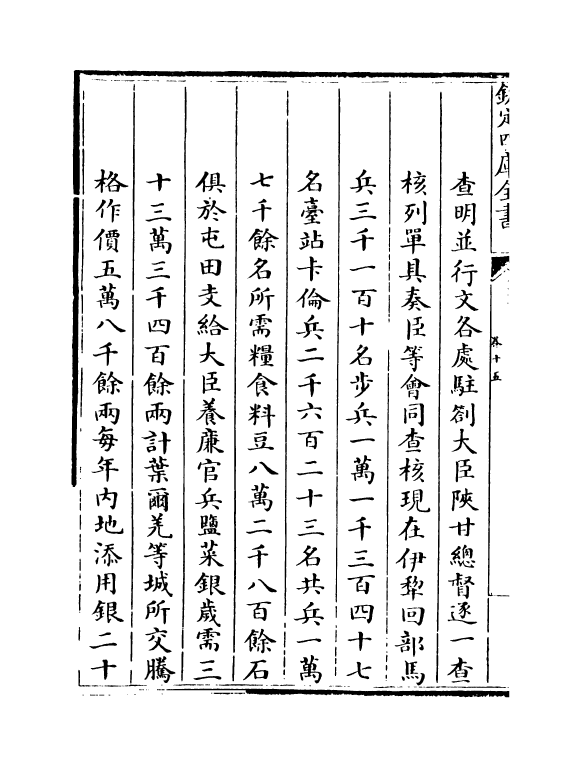 欽定四庫全書
卷十五
查明並行文各處駐劄大臣陝甘總督逐一查
核列單具奏臣等會同查核現在伊犂回部馬
兵三千一百十名步兵一萬一千三百四十七
名臺站卡倫兵二千六百二十三名共兵一萬
七千餘名所需糧食料豆八萬二千八百餘石
俱於屯田支給大臣養廉官兵鹽菜銀歲需三
十三萬三千四百餘兩計葉爾羌等城所交騰
格作價五萬八千餘兩每年內地添用銀二十